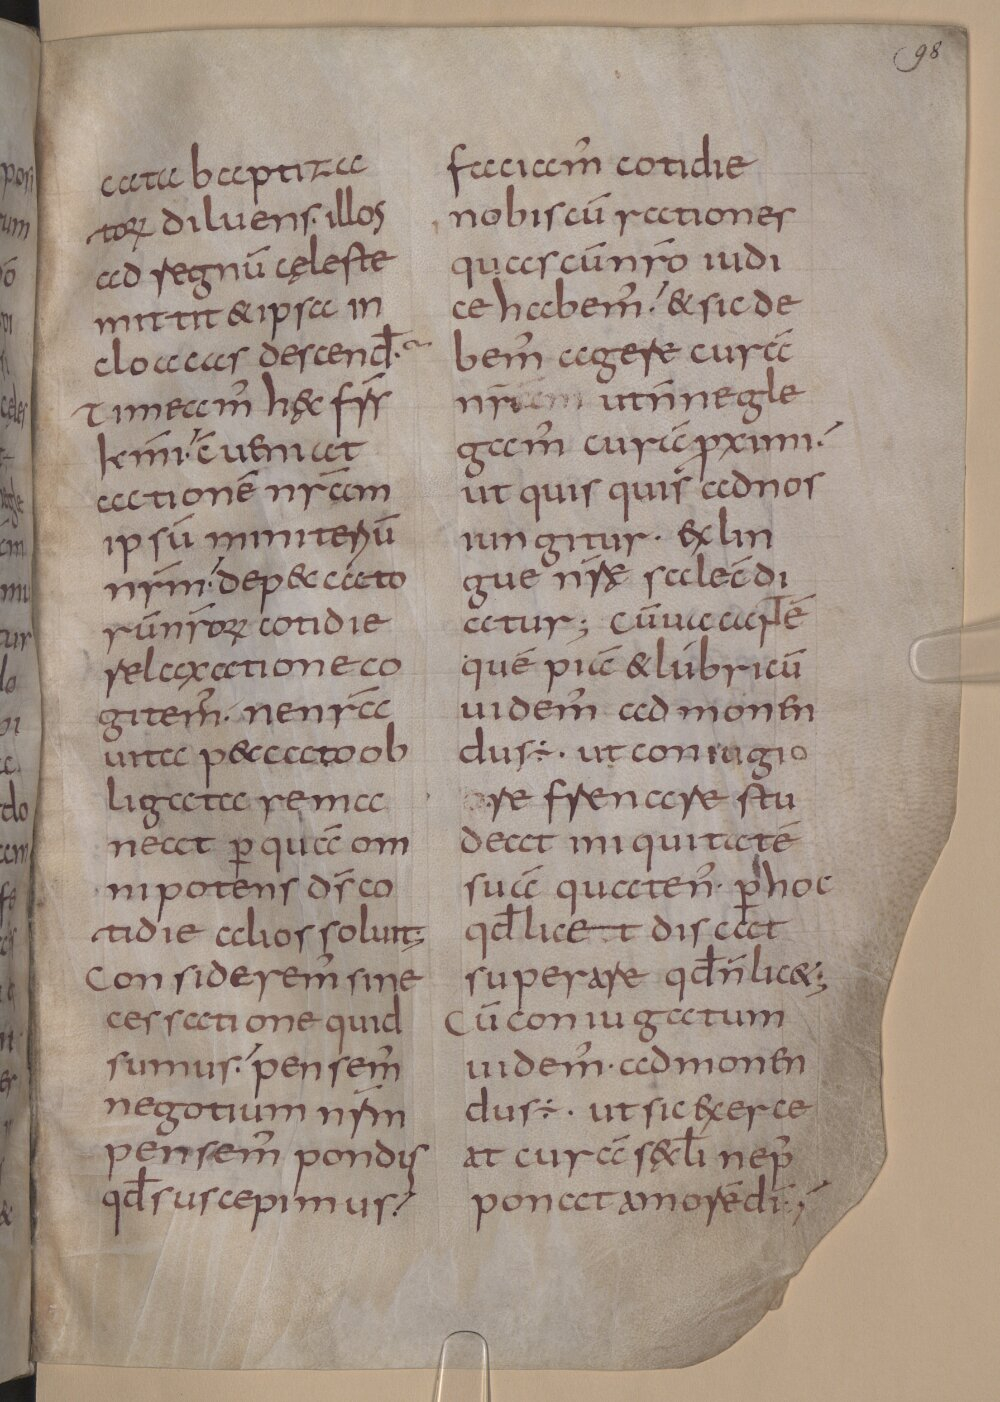 98
cata baptiza
torꝝ diluens. illos
ad regnū cęleste
mittit & ipsa in
cloacas descend̄.
Timeam̄ hęc frs̄
km̄i. c̄ueniat
actionē nrām
ipsū ministeriū
nrm̄. de peccato
rū nrōrꝝ cotidie
relaxatione co
gitem̄. ne nrā
uita peccato ob
ligata rema
neat ꝑ quā om
nipotens ds̄ co
tidie alios soluit;
Consideremꝰ sine
cessatione quid
sumus. pensem̄
negotium nrm̄
pensem̄ pondis
qd̄ suscepimus.
faciam̄ cotidie
nobiscū rationes
quas cū nrō iudi
ce habem̄. & sic de
bem̄ agere curā
nrī utn̄ negle
gam̄ curā ꝓximi.
ut quis quis ad nos
iungitur. ex lin
gue nrę sale cōdi
atur; Cū uacantē
quē piā & lubricū
uidem̄ admonen
dus ÷. ut coniugio
re frenare stu
deat iniquitatē
suā quaten̄. ꝑ hoc
qd̄ licet discat
superare qd̄ n̄ lic&;
Cū coniugatum
uidem̄. admonen
dus ÷. ut sic exerce
at curā sęcl̄i ne p̄
ponat amorē dī;